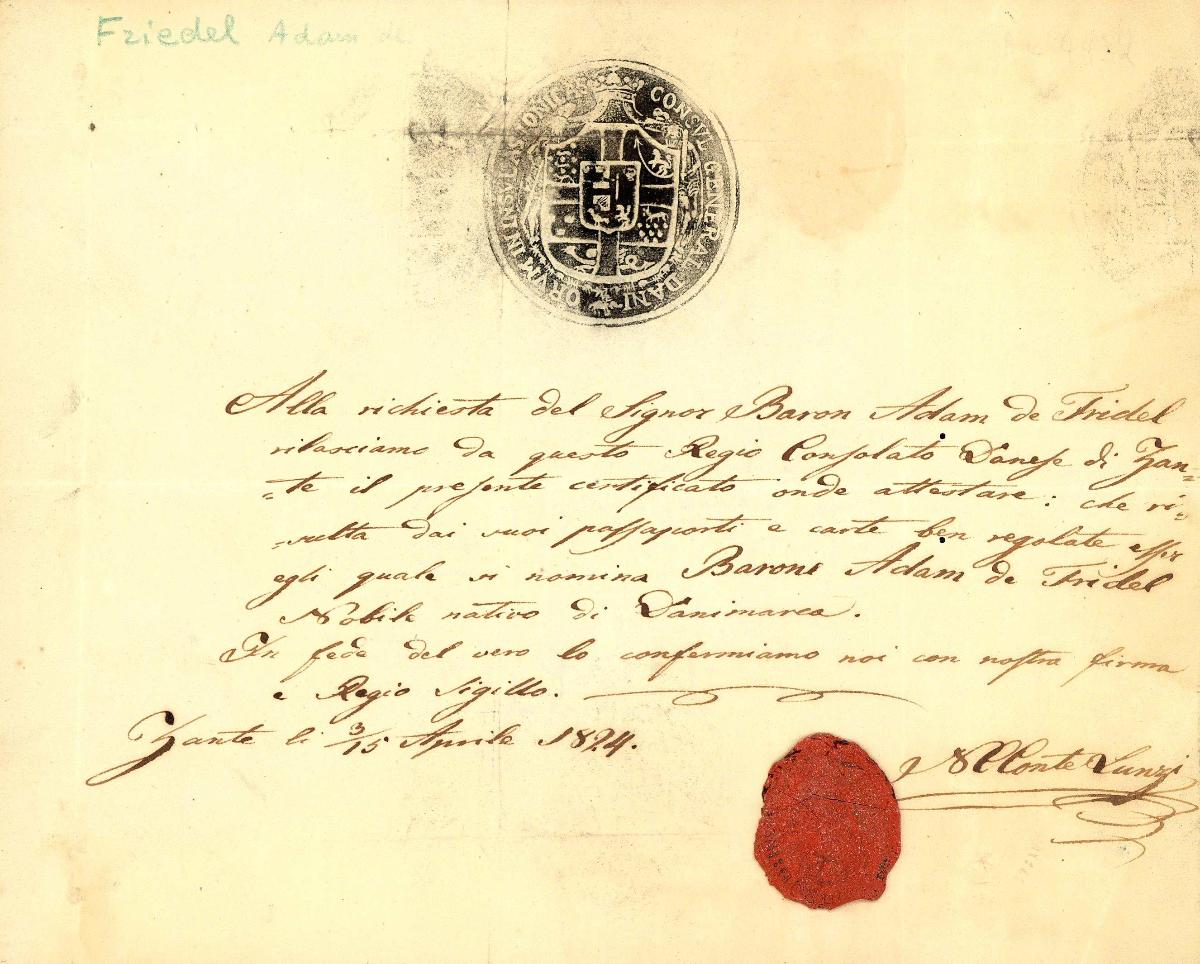 Friedel Adam de
CONSVL GENERAL DANI ORVM IN INSVLAS IONICAS
Alla richiesta del Signor Baron Adam de Fridel
rilasciamo da questo Regio Consolato Danese di Zan=
=te il presente certificato onde attestare: che ri=
=sulta dai suoi passaporti e carte ben regolate esser
egli quale si nomina Barone Adam de Fridel
Nobile nativo di Danimarca.
In fede del vero lo confermiamo noi con nostra firma
e Regio Sigillo.
Zante li 3/15 Aprile 1824.
N Conte Lunzi